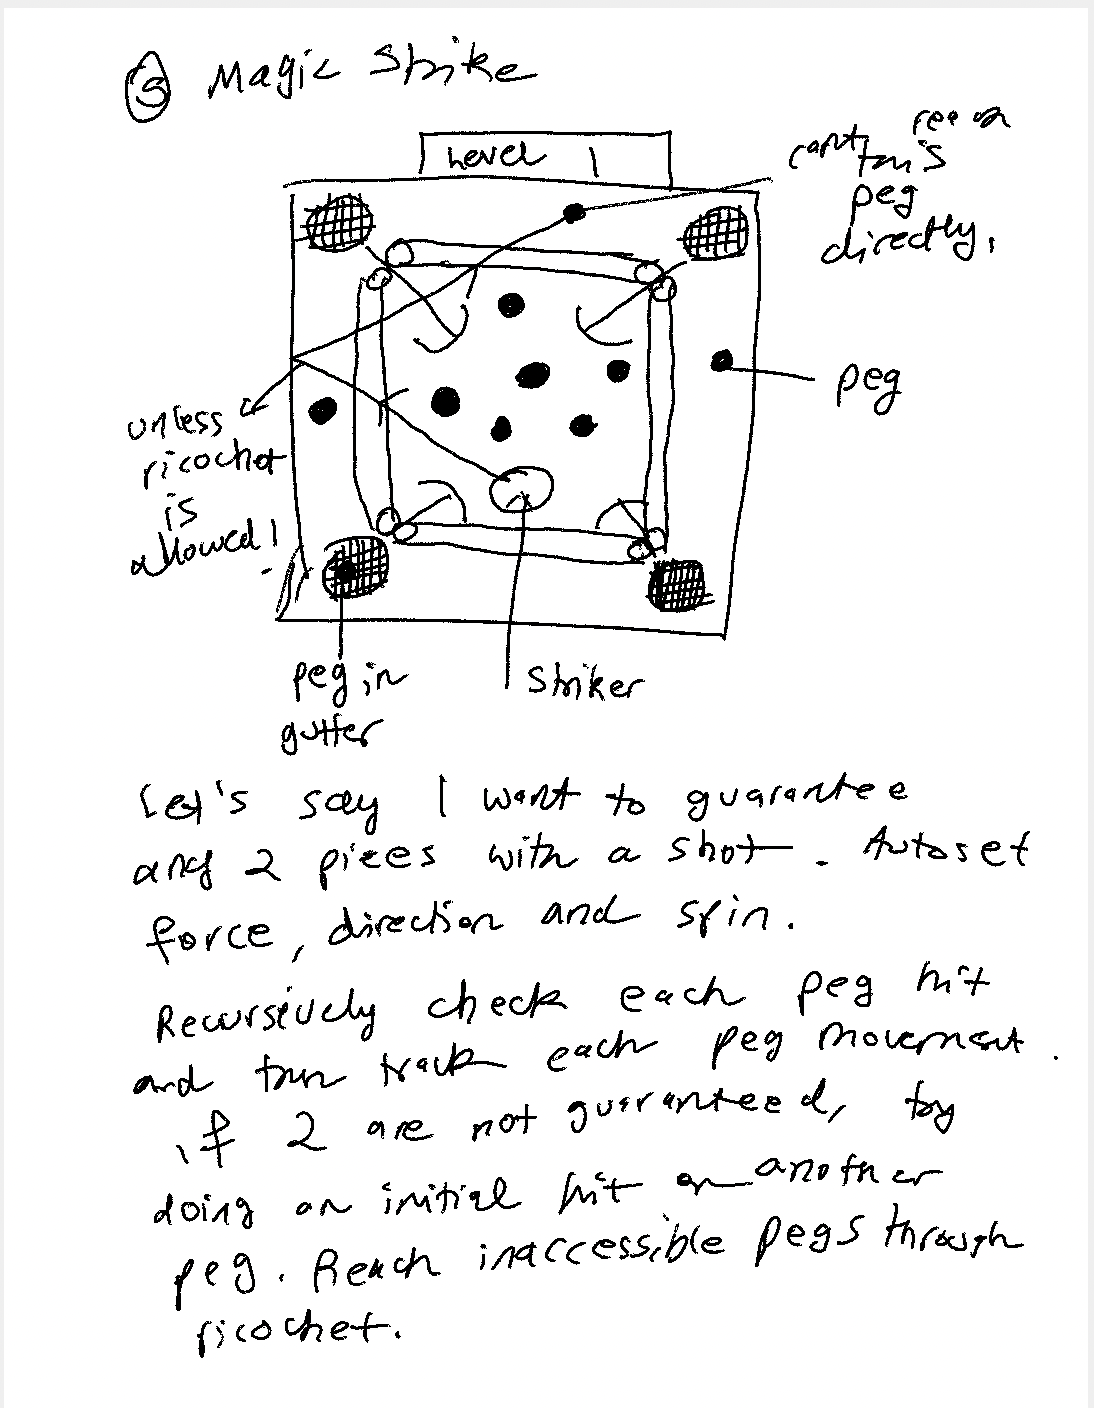 5 Magic Strike
Level 1
can't reach
this
peg
directly,
peg
unless
ricochet
is
allowed!
peg in
gutter
Striker
Let's say I want to guarantee
any 2 pieces with a shot. Autoset
force, direction and spin.
Recursively check each peg hit
and then track each peg movement.
if 2 are not guaranteed, try
doing an initial hit on another
peg. Reach inaccessible pegs through
ricochet.